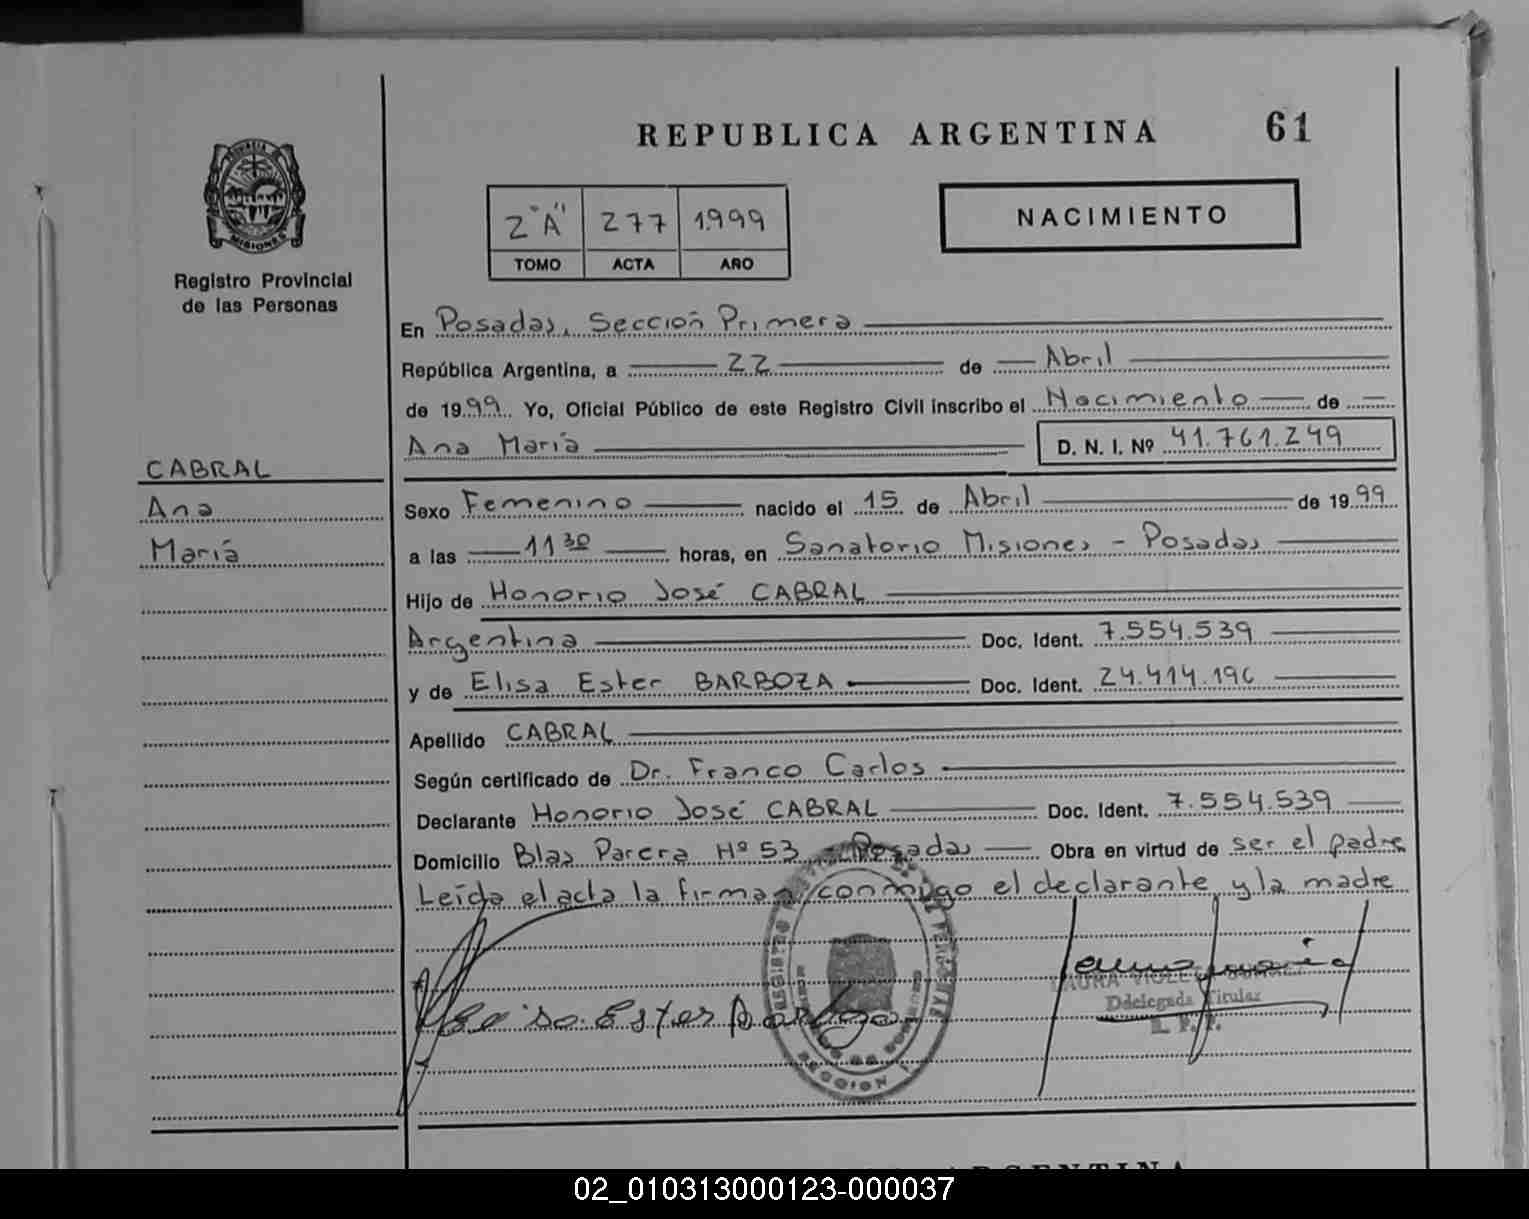 REPUBLICA ARGENTINA 61
PROVINCIA DE MISIONES
Registro Provincial
de las Personas
2 "A" 277 1.999
TOMO ACTA AÑO
NACIMIENTO
En Posadas, Sección Primera
República Argentina, a 22 de Abril
de 1999 Yo, Oficial Público de este Registro Civil inscribo el Nacimiento de
Ana María D. N. I. Nº 41.761.249
CABRAL
Ana
María
Sexo Femenino nacido el 15 de Abril de 1999
a las 11 30 horas, en Sanatorio Misiones - Posadas
Hijo de Honorio José CABRAL
Argentina Doc. Ident. 7.554.539
y de Elisa Ester BARBOZA Doc. Ident. 24.414.196
Apellido CABRAL
Según certificado de Dr. Franco Carlos
Declarante Honorio José CABRAL Doc. Ident. 7.554.539
Domicilio Blas Parera Nº 53 - Posadas Obra en virtud de ser el padre
Leída el acta la firman conmigo el declarante y la madre
Elisa Ester Barboza
LAURA
Ddelegada Titular
R. P. P.
ARGENTINA
02_010313000123-000037